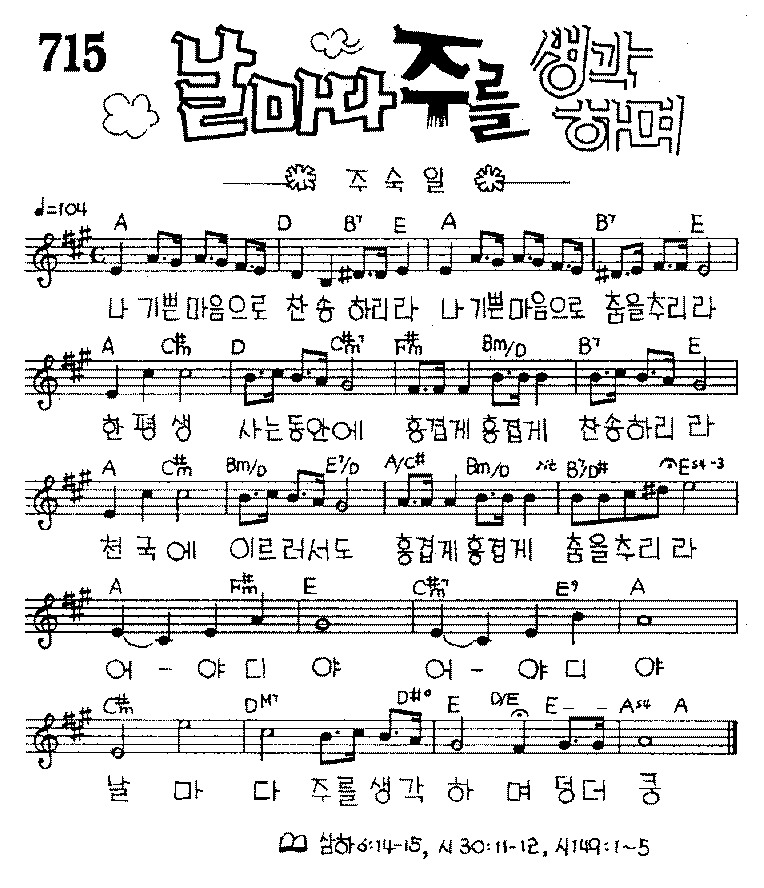 715
날마다 주를 생각
하며
주숙일
♩=104
A D B7 E A B7 E
나 기쁜마음으로 찬송 하리라 나기쁜마음으로 춤을추리라
A C#m D C#m7 F#m Bm/D B7 E
한평생 사는동안에 흥겹게 흥겹게 찬송하리라
A C#m Bm/D E7/D A/C# Bm/D rit B7/D# Es4-3
천국에 이르러서도 흥겹게흥겹게 춤을추리라
A F#m E C#m7 E9 A
어 - 야디 야 어 - 야디 야
C#m DM7 D#° E D/E E - - As4 A
날 마 다 주를생각 하 며 덩더 쿵
삼하6:14-15, 시30:11-12, 시149:1~5